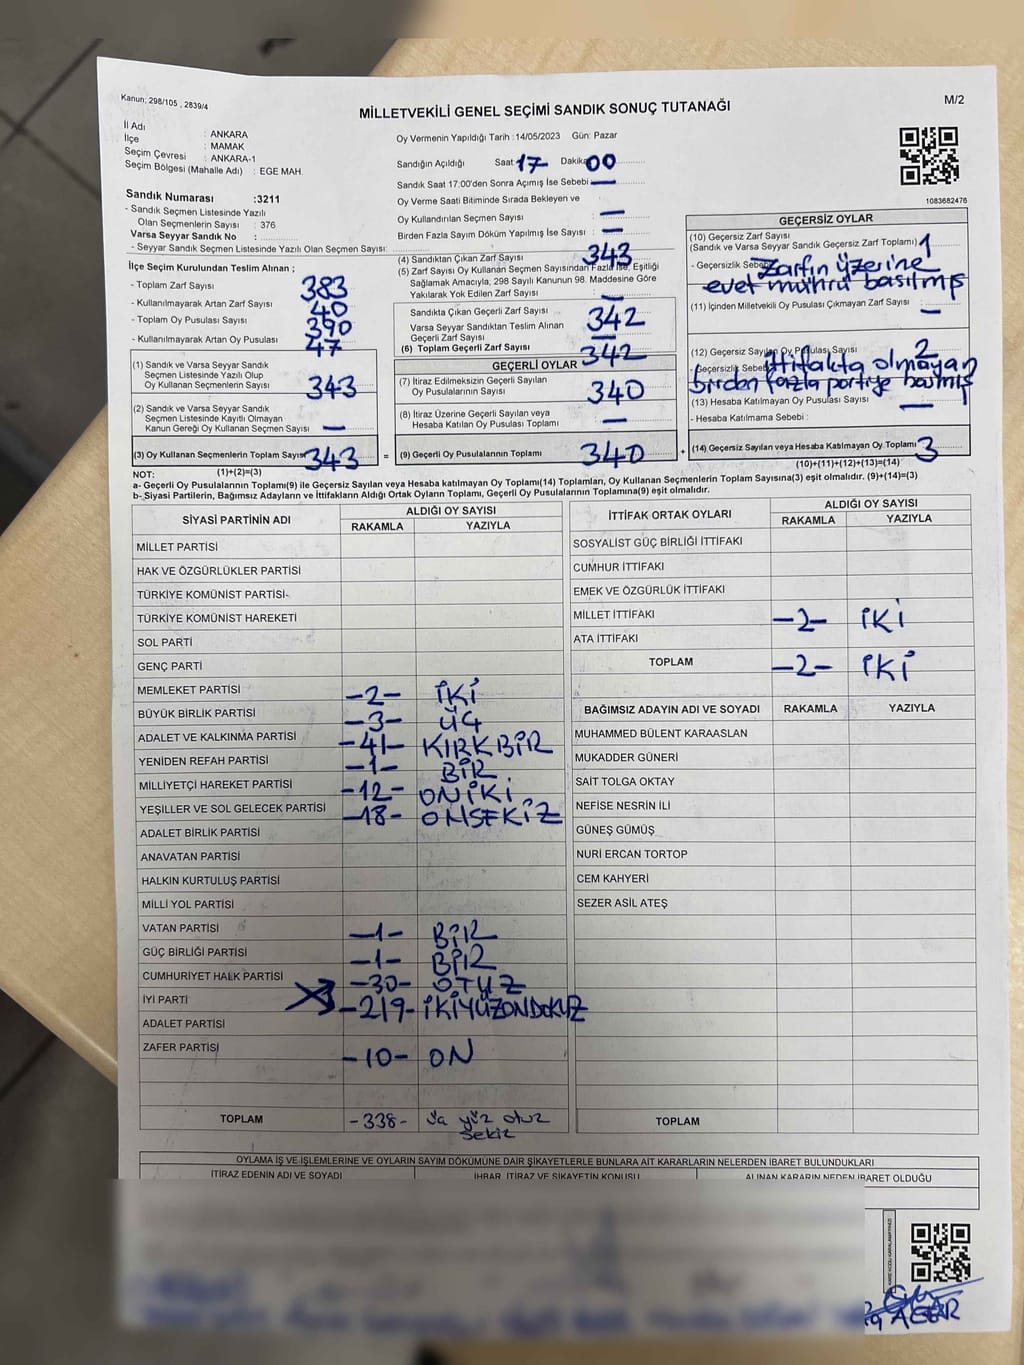 Kanun; 298/105 , 2839/4
MİLLETVEKİLİ GENEL SEÇİMİ SANDIK SONUÇ TUTANAĞI
M/2
İl Adı : ANKARA
İlçe : MAMAK
Seçim Çevresi : ANKARA-1
Seçim Bölgesi (Mahalle Adı) : EGE MAH.
Sandık Numarası :3211
- Sandık Seçmen Listesinde Yazılı
Olan Seçmenlerin Sayısı : 376
Varsa Seyyar Sandık No :
- Seyyar Sandık Seçmen Listesinde Yazılı Olan Seçmen Sayısı:
Oy Vermenin Yapıldığı Tarih :14/05/2023 Gün: Pazar
Sandığın Açıldığı Saat 17 Dakika 00
Sandık Saat 17:00'den Sonra Açımış İse Sebebi —
Oy Verme Saati Bitiminde Sırada Bekleyen ve
Oy Kullandırılan Seçmen Sayısı —
Birden Fazla Sayım Döküm Yapılmış İse Sayısı : —
1083682476
İlçe Seçim Kurulundan Teslim Alınan ;
- Toplam Zarf Sayısı 383
- Kullanılmayarak Artan Zarf Sayısı 40
- Toplam Oy Pusulası Sayısı 390
- Kullanılmayarak Artan Oy Pusulası 47
(1) Sandık ve Varsa Seyyar Sandık
Seçmen Listesinde Yazılı Olup
Oy Kullanan Seçmenlerin Sayısı 343
(2) Sandık ve Varsa Seyyar Sandık
Seçmen Listesinde Kayıtlı Olmayan
Kanun Gereği Oy Kullanan Seçmen Sayısı —
(3) Oy Kullanan Seçmenlerin Toplam Sayısı 343
(1)+(2)=(3)
(4) Sandıktan Çıkan Zarf Sayısı 343
(5) Zarf Sayısı Oy Kullanan Seçmen Sayısından Fazla İse, Eşitliği
Sağlamak Amacıyla, 298 Sayılı Kanunun 98. Maddesine Göre
Yakılarak Yok Edilen Zarf Sayısı —
Sandıkta Çıkan Geçerli Zarf Sayısı 342
Varsa Seyyar Sandıktan Teslim Alınan
Geçerli Zarf Sayısı —
(6) Toplam Geçerli Zarf Sayısı 342
GEÇERLİ OYLAR
(7) İtiraz Edilmeksizin Geçerli Sayılan
Oy Pusulalarının Sayısı 340
(8) İtiraz Üzerine Geçerli Sayılan veya
Hesaba Katılan Oy Pusulası Toplamı —
= (9) Geçerli Oy Pusulalarının Toplamı 340 +
GEÇERSİZ OYLAR
(10) Geçersiz Zarf Sayısı
(Sandık ve Varsa Seyyar Sandık Geçersiz Zarf Toplamı) 1
- Geçersizlik Sebebi Zarfın üzerine
evet mührü basıtmış
(11) İçinden Milletvekili Oy Pusulası Çıkmayan Zarf Sayısı —
(12) Geçersiz Sayılan Oy Pusulası Sayısı 2
- Geçersizlik Sebebi ittifakta olmayan
birden fazla partiye basmış
(13) Hesaba Katılmayan Oy Pusulası Sayısı —
- Hesaba Katılmama Sebebi :
(14) Geçersiz Sayılan veya Hesaba Katılmayan Oy Toplamı 3
(10)+(11)+(12)+(13)=(14)
NOT:
a- Geçerli Oy Pusulalarının Toplamı(9) ile Geçersiz Sayılan veya Hesaba Katılmayan Oy Toplamı(14) Toplamları, Oy Kullanan Seçmenlerin Toplam Sayısına(3) eşit olmalıdır. (9)+(14)=(3)
b- Siyasi Partilerin, Bağımsız Adayların ve İttifakların Aldığı Ortak Oyların Toplamı, Geçerli Oy Pusulalarının Toplamına(9) eşit olmalıdır.
SİYASİ PARTİNİN ADI ALDIĞI OY SAYISI
RAKAMLA YAZIYLA
MİLLET PARTİSİ
HAK VE ÖZGÜRLÜKLER PARTİSİ
TÜRKİYE KOMÜNİST PARTİSİ
TÜRKİYE KOMÜNİST HAREKETİ
SOL PARTİ
GENÇ PARTİ
MEMLEKET PARTİSİ -2- İKİ
BÜYÜK BİRLİK PARTİSİ -3- ÜÇ
ADALET VE KALKINMA PARTİSİ -41- KIRKBİR
YENİDEN REFAH PARTİSİ -1- BİR
MİLLİYETÇİ HAREKET PARTİSİ -12- ONİKİ
YEŞİLLER VE SOL GELECEK PARTİSİ -18- ONSEKİZ
ADALET BİRLİK PARTİSİ
ANAVATAN PARTİSİ
HALKIN KURTULUŞ PARTİSİ
MİLLİ YOL PARTİSİ
VATAN PARTİSİ -1- BİR
GÜÇ BİRLİĞİ PARTİSİ -1- BİR
CUMHURİYET HALK PARTİSİ -30- OTUZ
İYİ PARTİ -219- İKİYÜZONDOKUZ
ADALET PARTİSİ
ZAFER PARTİSİ -10- ON
TOPLAM -338- üç yüz otuz
sekiz
İTTİFAK ORTAK OYLARI ALDIĞI OY SAYISI
RAKAMLA YAZIYLA
SOSYALİST GÜÇ BİRLİĞİ İTTİFAKI
CUMHUR İTTİFAKI
EMEK VE ÖZGÜRLÜK İTTİFAKI
MİLLET İTTİFAKI -2- İKİ
ATA İTTİFAKI
TOPLAM -2- İKİ
BAĞIMSIZ ADAYIN ADI VE SOYADI RAKAMLA YAZIYLA
MUHAMMED BÜLENT KARAASLAN
MUKADDER GÜNERİ
SAİT TOLGA OKTAY
NEFİSE NESRİN İLİ
GÜNEŞ GÜMÜŞ
NURİ ERCAN TORTOP
CEM KAHYERİ
SEZER ASİL ATEŞ
TOPLAM
OYLAMA İŞ VE İŞLEMLERİNE VE OYLARIN SAYIM DÖKÜMÜNE DAİR ŞİKAYETLERLE BUNLARA AİT KARARLARIN NELERDEN İBARET BULUNDUKLARI
İTİRAZ EDENİN ADI VE SOYADI İHBAR, İTİRAZ VE ŞİKAYETİN KONUSU ALINAN KARARIN NEDEN İBARET OLDUĞU